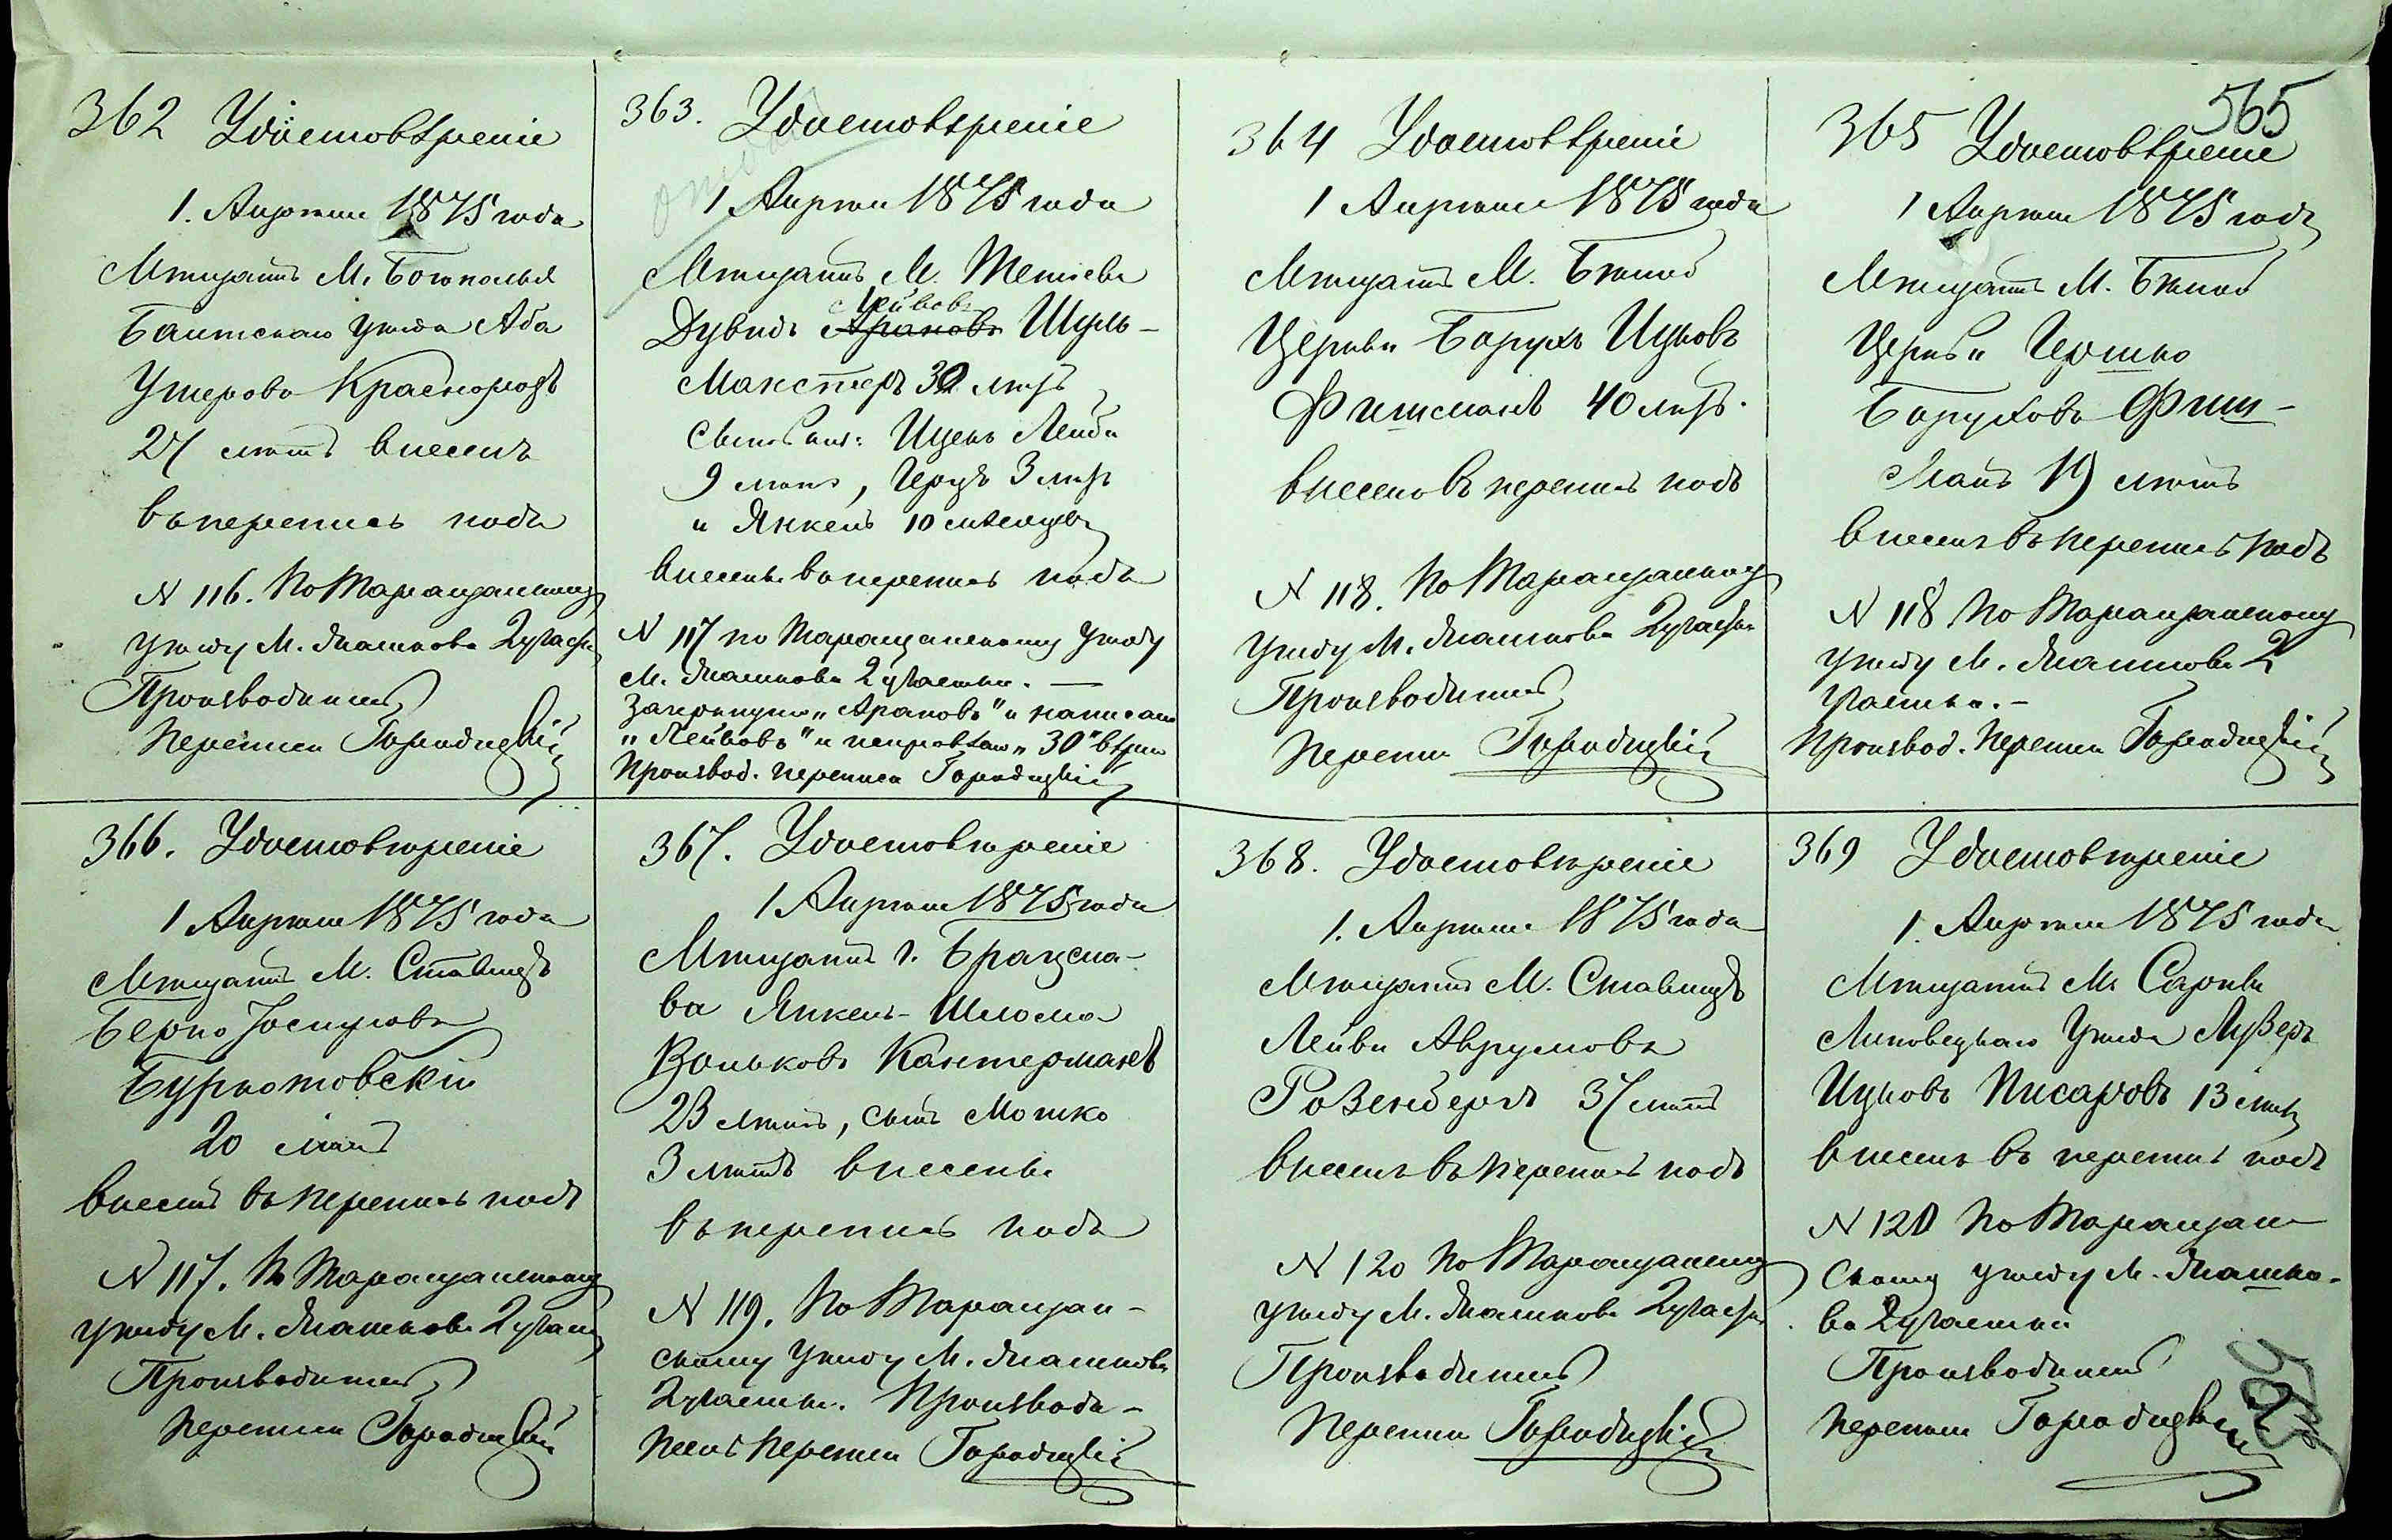 565
362 Удостовѣреніе
1. Апрѣля 1875 года
Мѣщанинъ М. Богополья
Балтскаго уѣзда Аба
Умеровъ Красногодъ
27 лѣтъ внесенъ
въ перепись подъ
N 116. По Таращанскому
уѣзду М. Пятигоры 2 участка
Производитель
переписи Городецкій
363. Удостовѣреніе
1 Апрѣля 1875 года
Мѣщанинъ М. Тетіева
Лейбовъ
Дувидъ Ароновъ Шуль-
макстеръ 30 лѣтъ
сыновья: Ицекъ Лейба
9 лѣтъ, Герцъ 3 лѣтъ
и Янкель 10 мѣсяцевъ
внесены въ перепись подъ
N 117 по Таращанскому уѣзду
2 участка. —
Зачеркнуто „Ароновъ" и написано
„Лейбовъ" и исправлено „30" вѣрно
Производ. переписи Городецкій
364 Удостовѣреніе
1 Апрѣля 1875 года
Мѣщанинъ М. Бѣлой
Церкви Борухъ Ицковъ
Фишманъ 40 лѣтъ.
внесенъ въ перепись подъ
N 118. По Таращанскому
уѣзду 2 участка
Производитель
переписи Городецкій
365 Удостовѣреніе
1 Апрѣля 1875 года
Мѣщанинъ М. Бѣлой
Церкви Гершко
Боруховъ Фиш-
манъ 19 лѣтъ
внесенъ въ перепись подъ
N 118 по Таращанскому
уѣзду 2
участка. -
Производ. переписи Городецкій
366. Удостовѣреніе
1 Апрѣля 1875 года
Мѣщанинъ М. Ставищъ
Берко Іосиповъ
Буркотовскій
20 лѣтъ
внесенъ въ перепись подъ
N 117. По Таращанскому
уѣзду 2 участка
Производитель
переписи Городецкій
367. Удостовѣреніе
1 Апрѣля 1875 года
Мѣщанинъ г. Брацла-
ва Янкель-Шлома
Вольковъ Кантерманъ
23 лѣтъ, сынъ Мошко
3 лѣтъ внесены
въ перепись подъ
N 119. По Таращан-
скому уѣзду
2 участка. Производи-
тель переписи Городецкій
368. Удостовѣреніе
1. Апрѣля 1875 года
Мѣщанинъ М. Ставищъ
Лейба Аврумовъ
Розенбергъ 37 лѣтъ
внесенъ въ перепись подъ
N 120 По Таращанскому
уѣзду 2 участка
Производитель
переписи Городецкій
369 Удостовѣреніе
1. Апрѣля 1875 года
Мѣщанинъ М.
Липовецкаго уѣзда Лузеръ
Ицковъ Писаровъ 13 лѣтъ
внесенъ въ перепись подъ
N 120 По Таращан-
скому уѣзду
2 участка
Производитель
переписи Городецкій